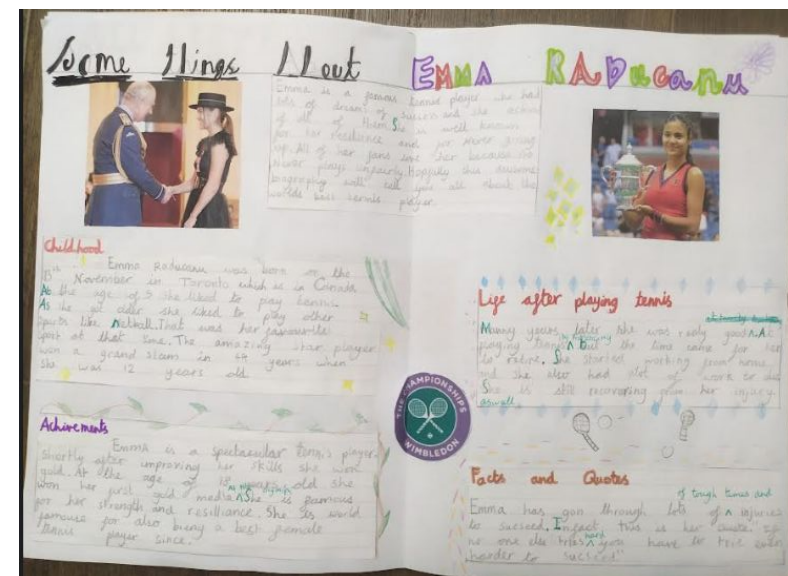 Some things About
EMMA RADucanu
Emma is a famous tennis player who had
lots of dreams of success and she achived
all of them. She is well known
for her resilience and for never giving
up. All of her fans love her because she
never plays unfairly. Hoppfully this awsome
biography will tell you all about the
worlds best tennis player.
Childhood
Emma Raducanu was born on the
13th November in Toronto which is in Canada
At the age of 5 she liked to play tennis
As she got older she liked to play other
sports like Netball. That was her favourite
sport at that time. The amazing star player
won a grand slam in 64 years when
she was 12 years old
Achivements
Emma is a spectacular tennis player
shortly after improving her skills she won
gold. At the age of 13 years old she
won her first gold medal She is famous
for her strength and resilliance. She is world
famouse for also bieng a best female
tennis player since.
Life after playing tennis
Munny years later she was realy good At
playing tennis but the time came for her
to retire. She started working from home
and she also had alot of work to do
She is still recovering from her injury
aswell
THE CHAMPIONSHIPS
WIMBLEDON
Facts and Quotes
of tough times and
Emma has gon through lots of injuries
to sucseed. Infact this is her quote "If
no one else tries hard you have to trie even
harder to sucseed"